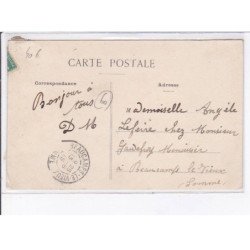 CARTE POSTALE
Correspondance
Adresse
Bonjour à
tous
D M
Mademoiselle Angèle
Lefèvre chez Monsieur
Menuisier
à Beaucamps le Vieux
Somme